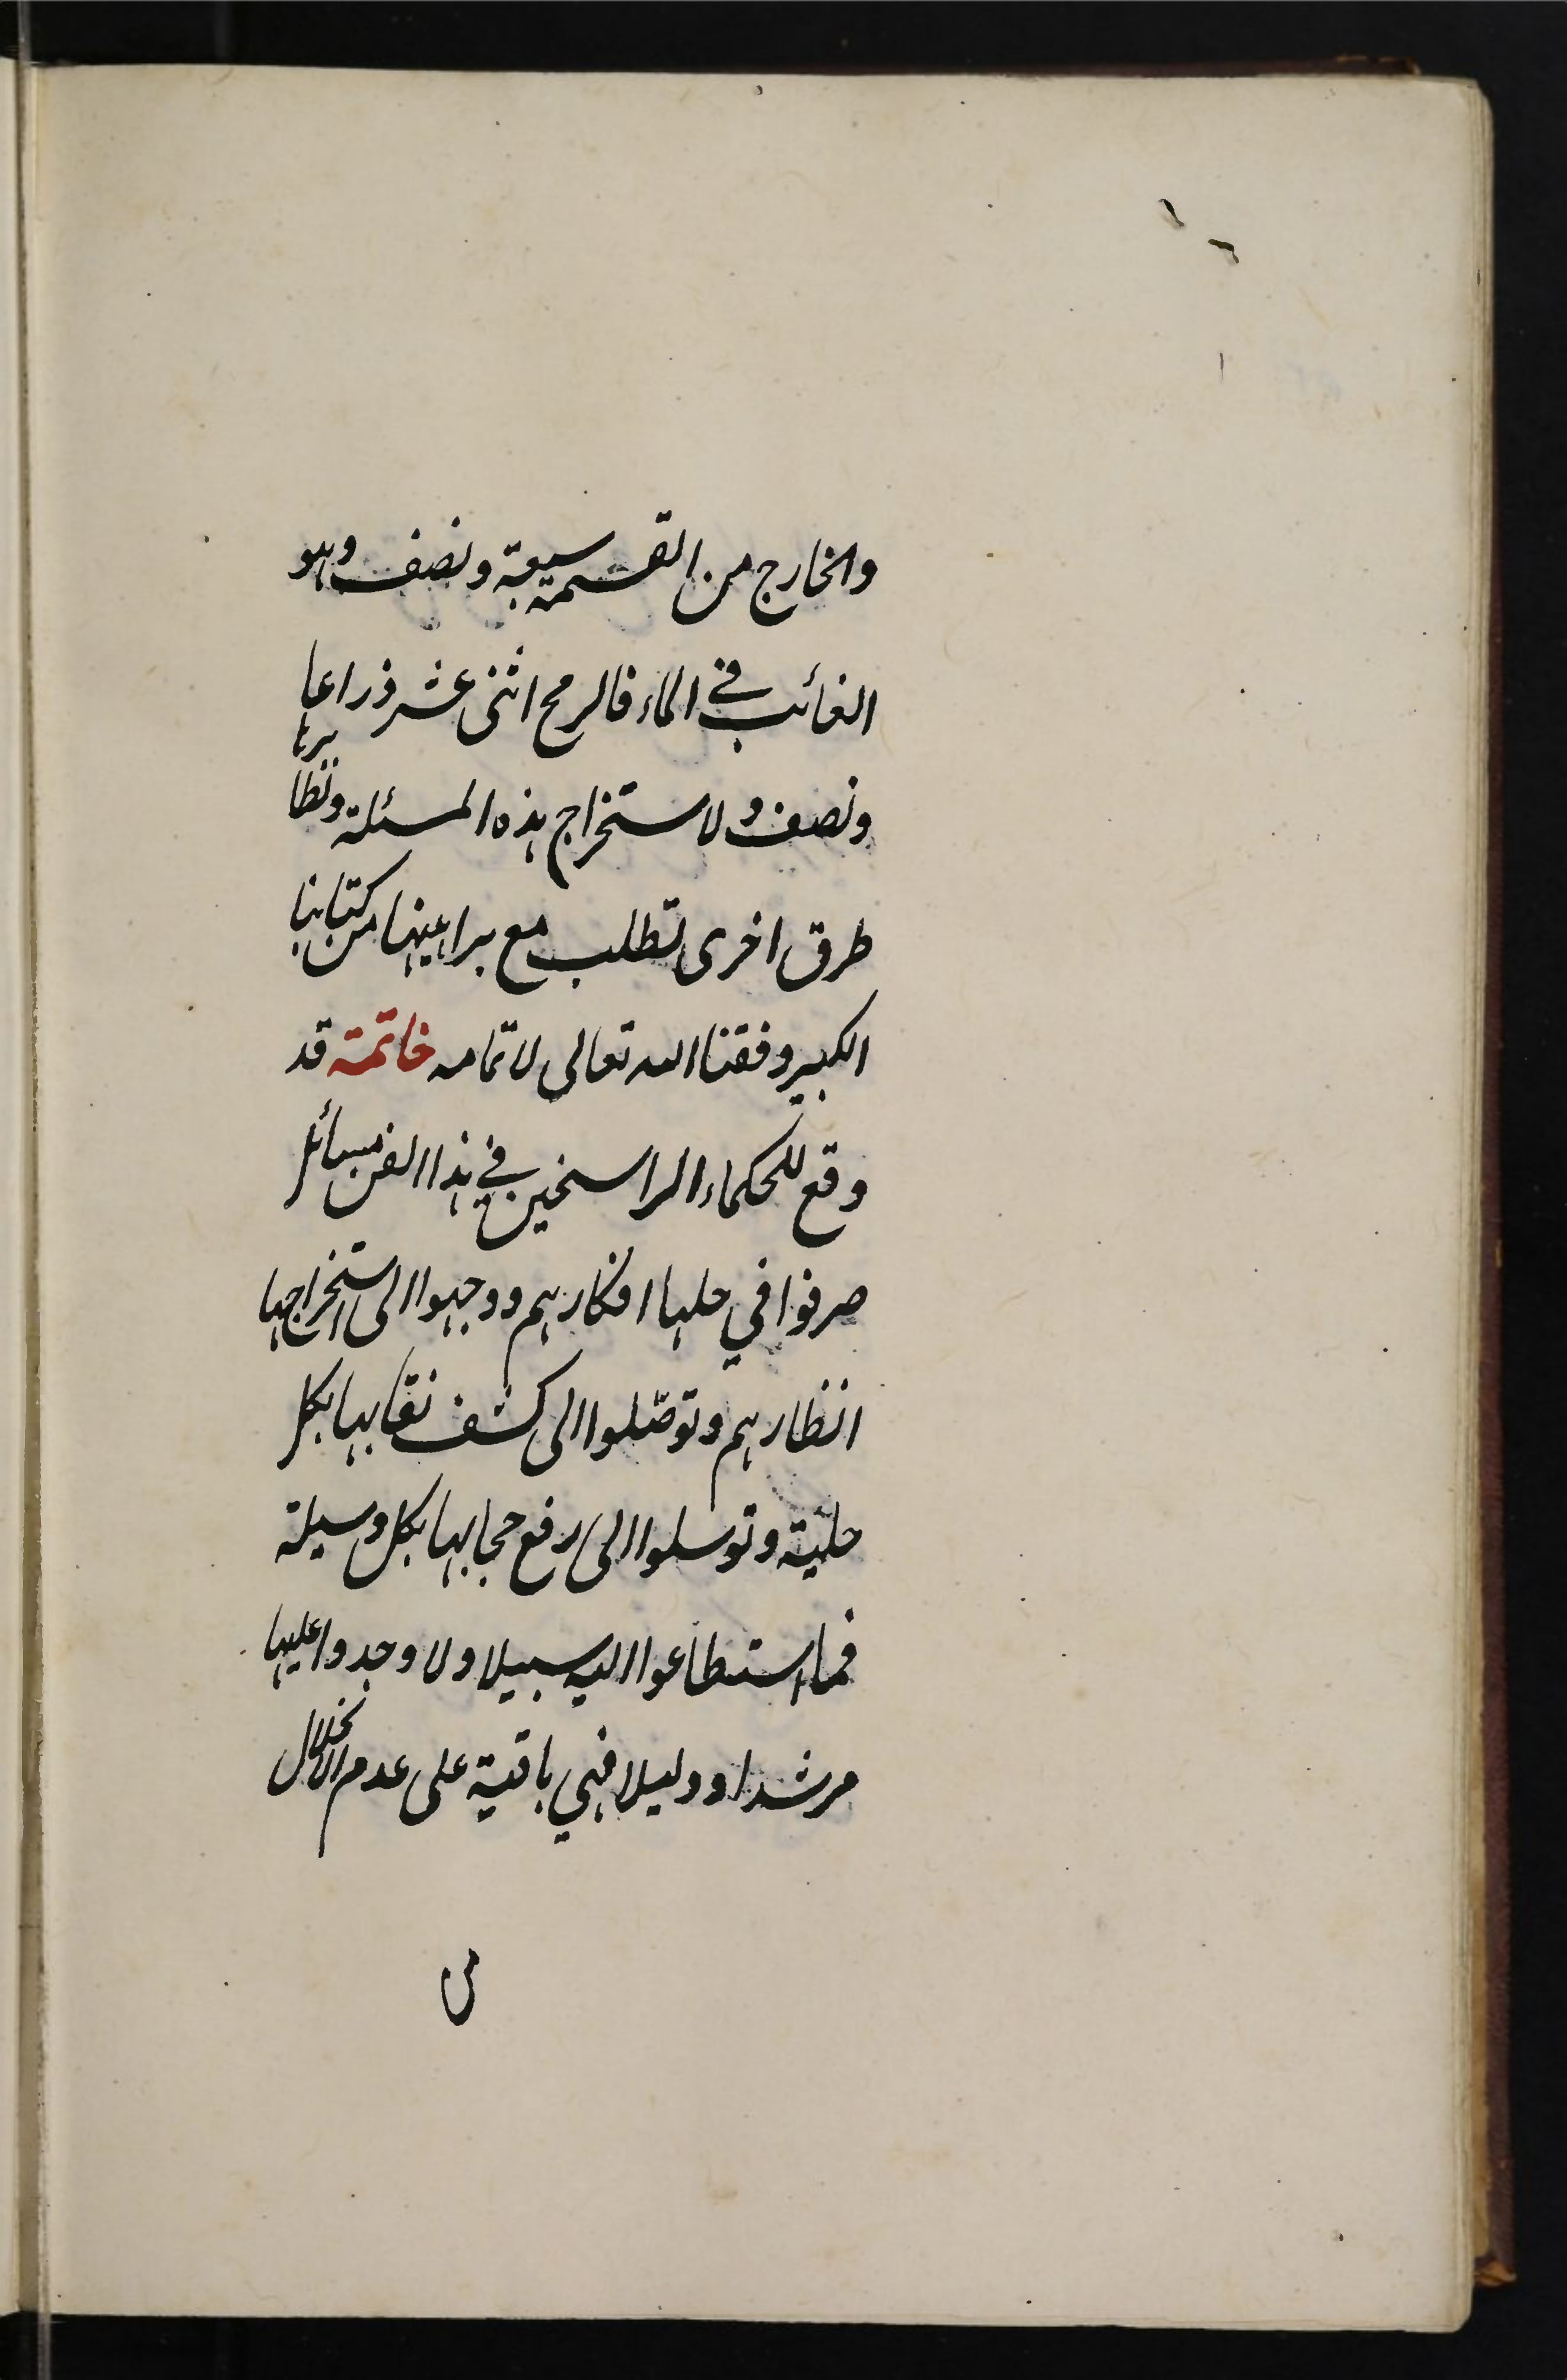 والخارج من القسمة سبعة ونصف وهو
الغائب في الماء فالرمح اثنى عشر ذراعا
ونصف ولاستخراج هذه المسئلة ونظايرها
طرق اخرى تطلب مع براهينها من كتابنا
الكبير وفقنا الله تعالى لاتمامه خاتمة قد
وقع للحكماء الراسخين في هذا الفن مسائل
صرفوا في حلها افكارهم ووجهوا الى استخراجها
انظارهم وتوصّلوا الى كشف نقابها بكل
حلية وتوسلوا الى رفع حجابها بكل وسيلة
فما استطاعوا اليه سبيلا ولا وجدوا عليها
مرشدا ودليلا فهي باقية على عدم الانحلال
من